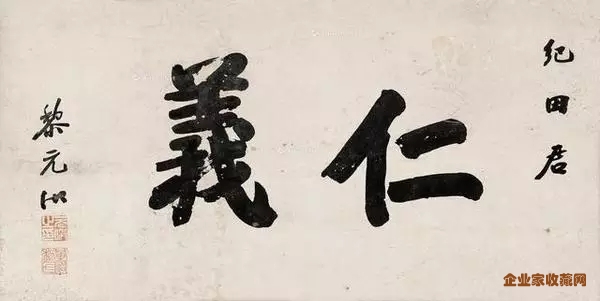 纪田君
仁義
黎元洪
企业家收藏网